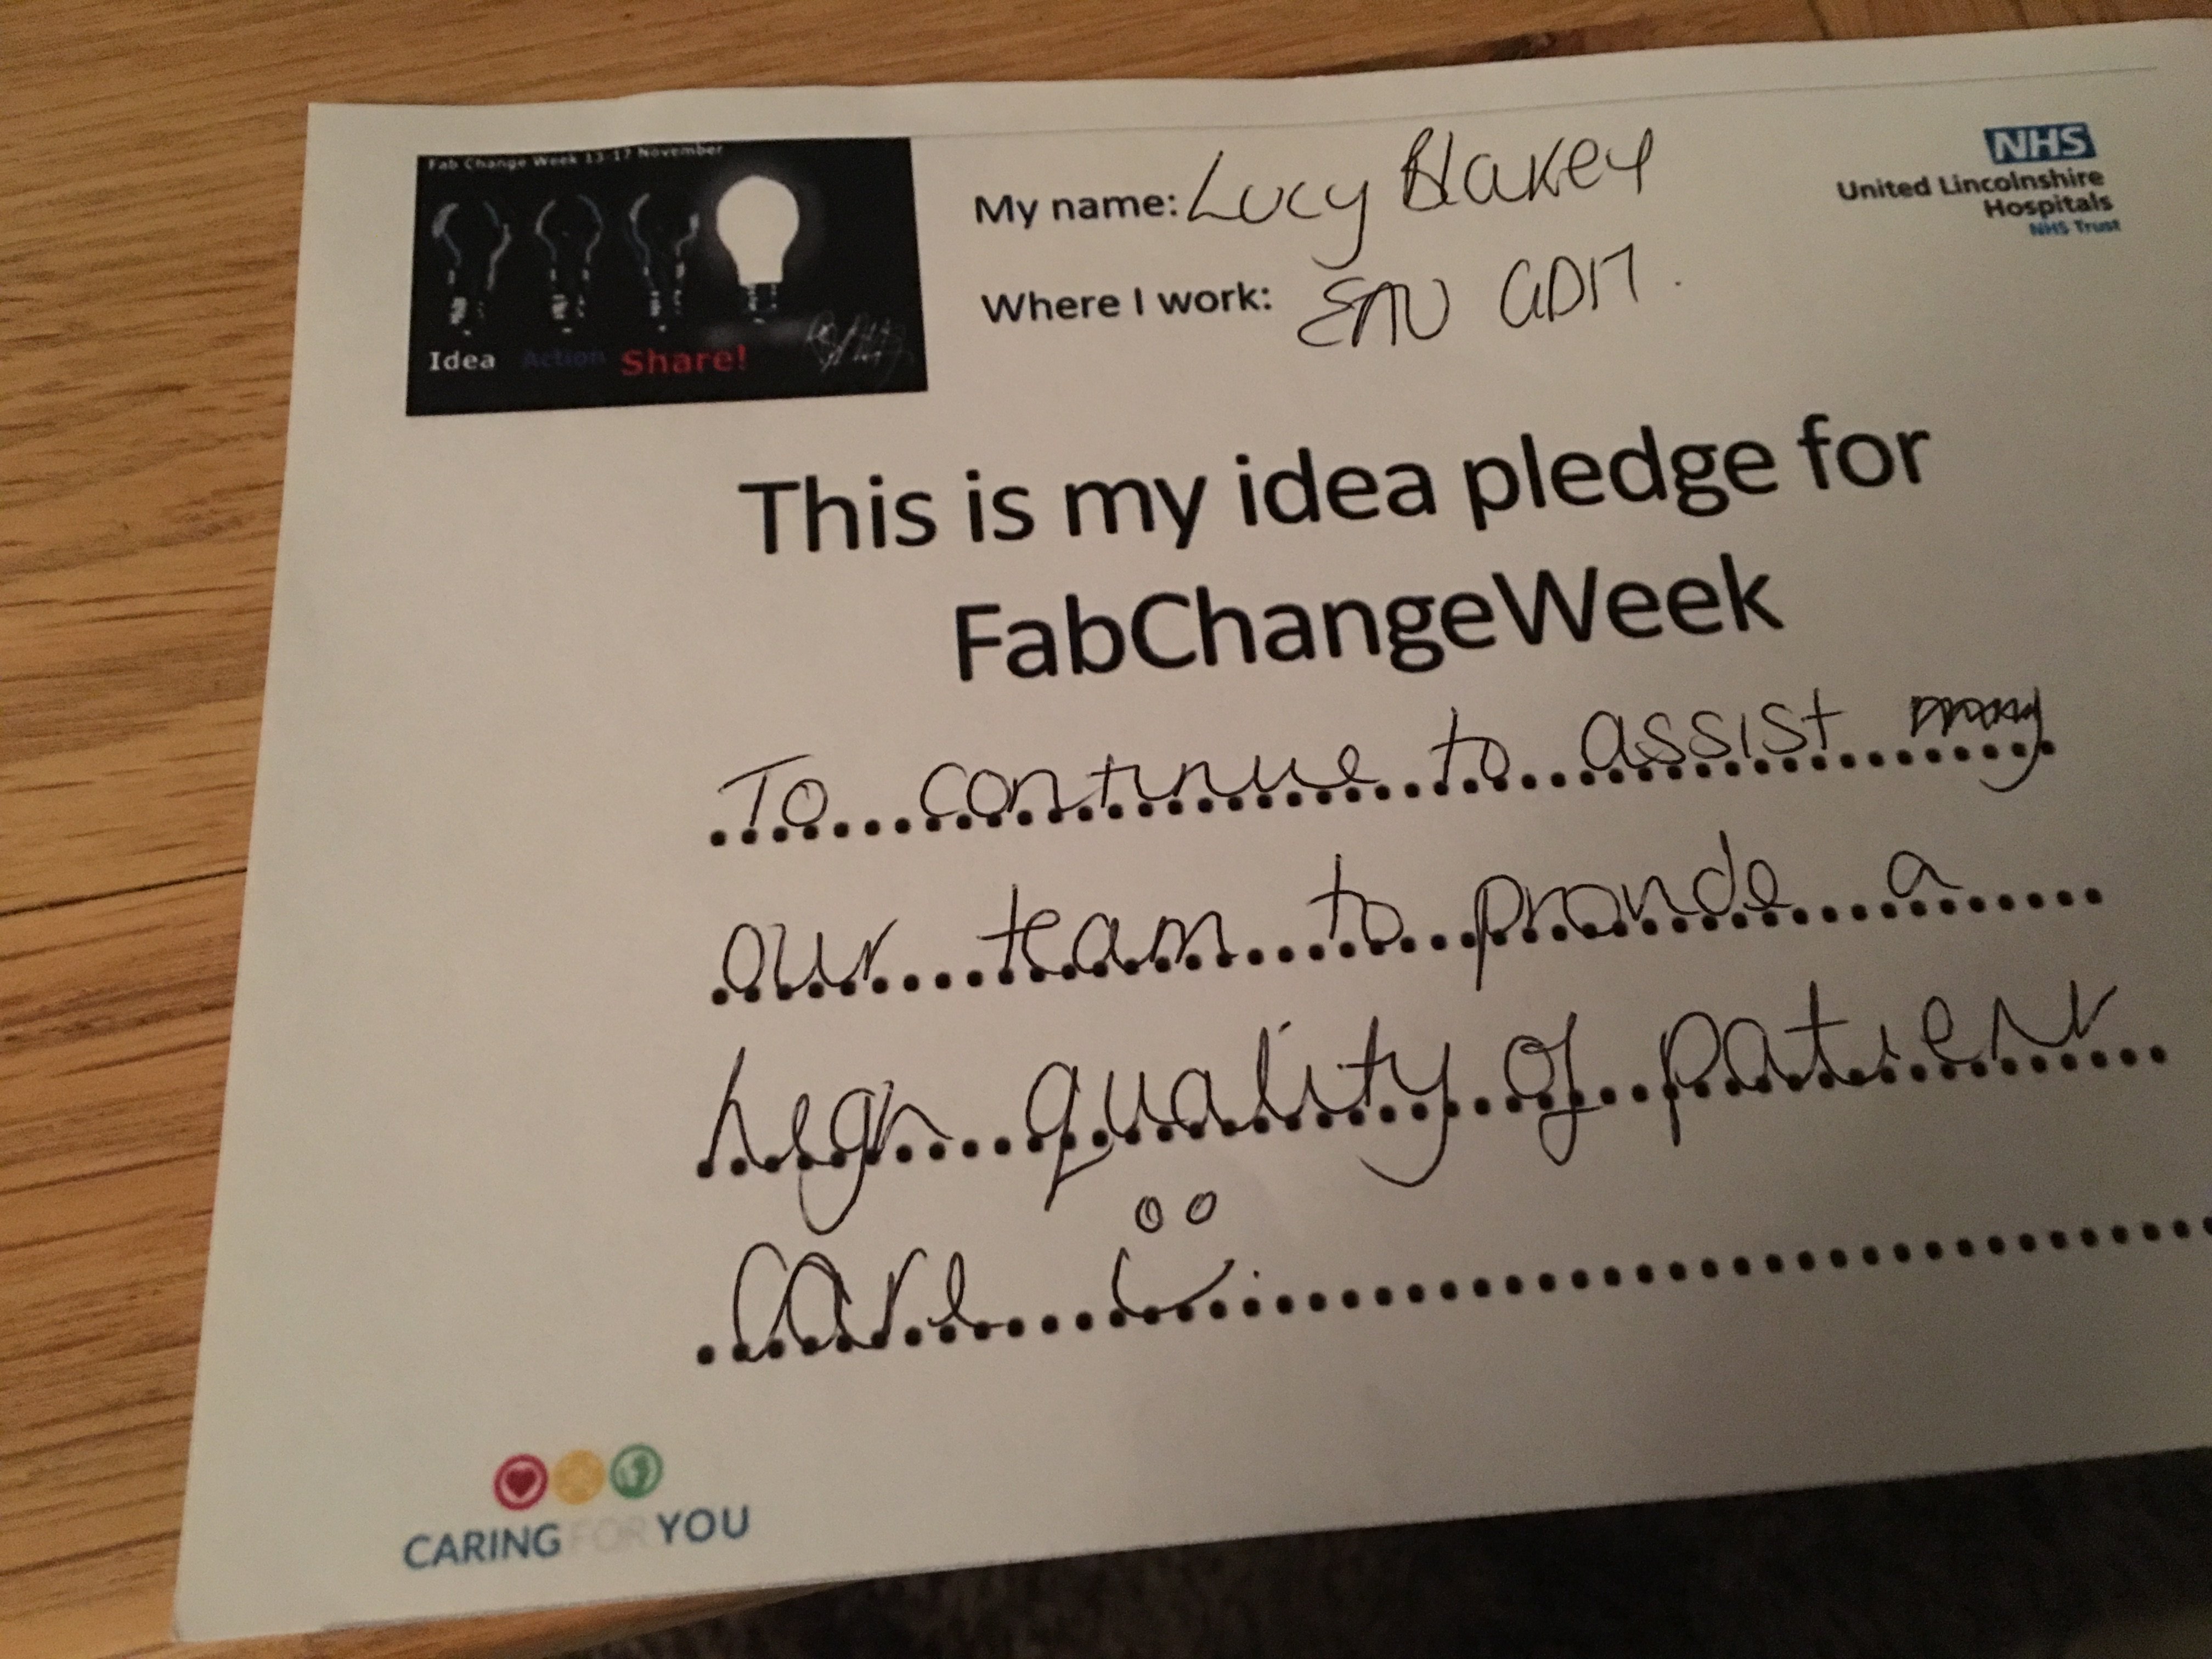 Fab Change Week 13-17 November
Idea Action Share!
My name: Lucy Blakey
Where I work: EAU GDH.
NHS
United Lincolnshire
Hospitals
NHS Trust
This is my idea pledge for
FabChangeWeek
To continue to assist
our team to provide a
high quality of patient
care
CARING FOR YOU